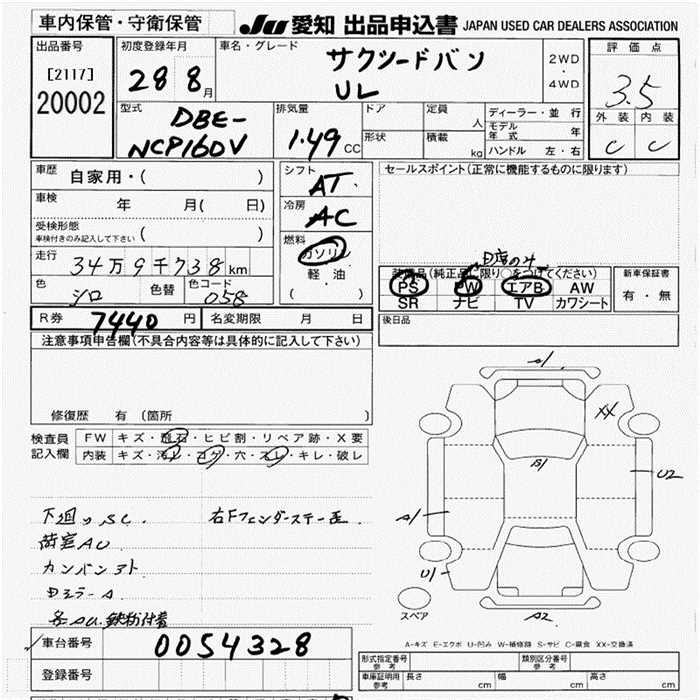 車内保管・守衛保管
JU 愛知 出品申込書 JAPAN USED CAR DEALERS ASSOCIATION
出品番号
[2117]
20002
初度登録年月
28 8月
車名・グレード
サクシードバン
UL
2WD
・
4WD
評価点
3.5
外装 内装
C C
型式
DBE-
NCP160V
排気量
1.49 CC
ドア
形状
定員
人
積載
kg
ディーラー・並行
モデル年式 年
ハンドル 左・右
車歴
自家用・( )
車検
年 月( 日)
受検形態
車検付きのみ記入して下さい ( )
走行
34万9千738km
色
シロ
色替
色コード
058
シフト
AT
冷房
AC
燃料
ガソリン
軽油
( )
セールスポイント(正常に機能するものに限ります)
装備品(純正品に限り○をつけてください)
PS PW エアB AW
SR ナビ TV カワシート
新車保証書
有・無
R券 7440 円
名変期限 月 日
後日品
注意事項申告欄(不具合内容等は具体的に記入して下さい)
修復歴 有(箇所 )
検査員
記入欄
FW キズ・飛石・ヒビ割・リペア跡・X要
内装 キズ・汚れ・コゲ・穴・スレ・キレ・破レ
下廻りSC.
右Fフェンダーステー歪
荷室AU
カンバンアト
ミラーA
各AU.鉄粉付着
A1
XX
B1
U2
A1
U1
A2
スペア
A-キズ E-エクボ U-凹み W-補修跡 S-サビ C-腐食 XX-交換済
車台番号
0054328
登録番号
形式指定番号
参考
類別区分番号
参考
車庫証明用
参考
長さ cm
幅 cm
高さ cm